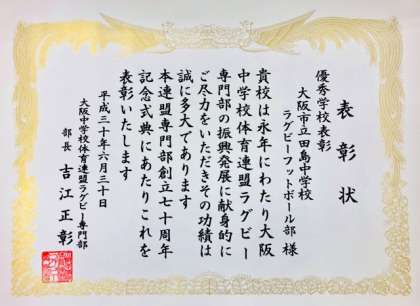 表彰状
優秀学校表彰
大阪市立田島中学校
ラグビーフットボール部 様
貴校は永年にわたり大阪
中学校体育連盟ラグビー
専門部の振興発展に献身的に
ご尽力をいただきその功績は
誠に多大であります
本連盟専門部創立七十周年
記念式典にあたりこれを
表彰いたします
平成三十年六月三十日
大阪中学校体育連盟ラグビー専門部
部長 吉江正彰